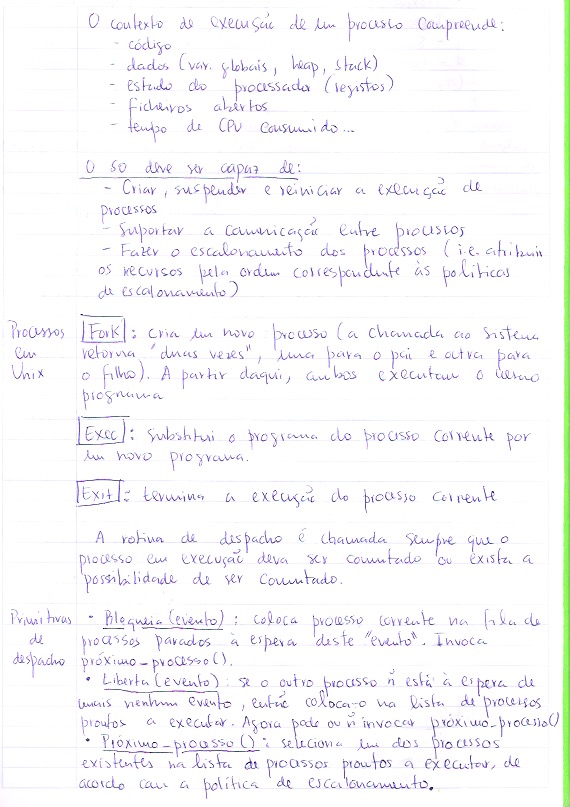 O contexto de execução de um processo compreende:
- código
- dados (var. globais, heap, stack)
- estado do processador (registos)
- ficheiros abertos
- tempo de CPU consumido...
O SO deve ser capaz de:
- Criar, suspender e reiniciar a execução de
processos
- Suportar a comunicação entre processos
- Fazer o escalonamento dos processos (i.e. atribuir
os recursos pela ordem correspondente às políticas
de escalonamento)
Processos
em
Unix
Fork: cria um novo processo (a chamada ao sistema
retorna "duas vezes", uma para o pai e outra para
o filho). A partir daqui, ambos executam o mesmo
programa
Exec: substitui o programa do processo corrente por
um novo programa.
Exit: termina a execução do processo corrente
A rotina de despacho é chamada sempre que o
processo em execução deva ser comutado ou exista a
possibilidade de ser comutado.
Primitivas
de
despacho
• Bloqueia (evento): coloca processo corrente na fila de
processos parados à espera deste "evento". Invoca
próximo_processo().
• Liberta (evento): se o outro processo ñ está à espera de
mais nenhum evento, então coloca-o na lista de processos
prontos a executar. Agora pode ou ñ invocar próximo_processo()
• Próximo_processo(): seleciona um dos processos
existentes na lista de processos prontos a executar, de
acordo com a política de escalonamento.